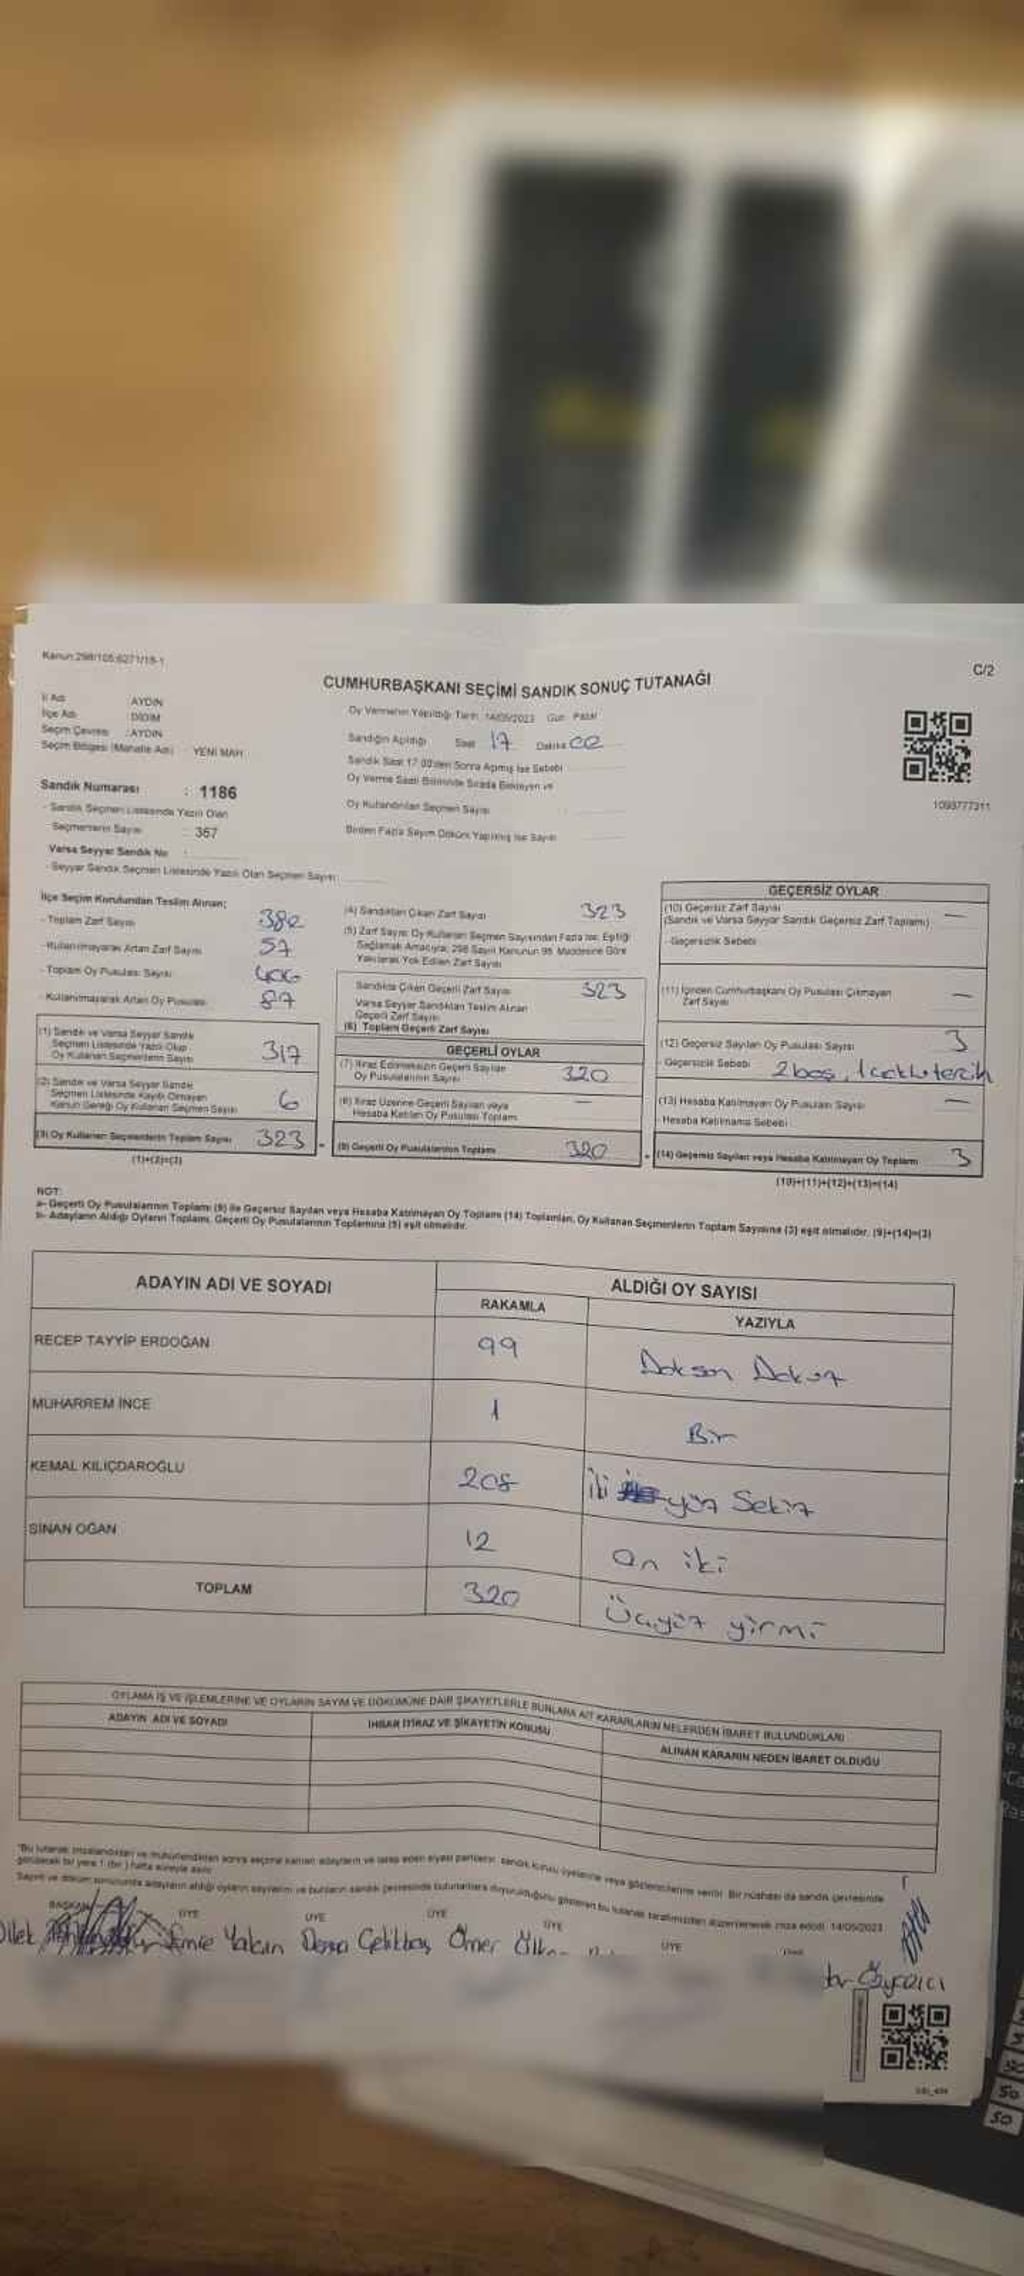 Kanun:298/105;6271/19-1
C/2
CUMHURBAŞKANI SEÇİMİ SANDIK SONUÇ TUTANAĞI
İl Adı : AYDIN
İlçe Adı : DİDİM
Seçim Çevresi : AYDIN
Seçim Bölgesi (Mahalle Adı) YENİ MAH
Oy Vermenin Yapıldığı Tarih 14/05/2023 Gün Pazar
Sandığın Açıldığı Saat 17 Dakika 02
Sandık Saat 17:00'den Sonra Açılmış İse Sebebi
Oy Verme Saati Bitiminde Sırada Bekleyen ve
Oy Kullandırılan Seçmen Sayısı
Birden Fazla Sayım Döküm Yapılmış İse Sayısı
1093777311
Sandık Numarası : 1186
- Sandık Seçmen Listesinde Yazılı Olan
Seçmenlerin Sayısı : 367
Varsa Seyyar Sandık No :
- Seyyar Sandık Seçmen Listesinde Yazılı Olan Seçmen Sayısı
İlçe Seçim Kurulundan Teslim Alınan;
- Toplam Zarf Sayısı 380
- Kullanılmayarak Artan Zarf Sayısı 57
- Toplam Oy Pusulası Sayısı 400
- Kullanılmayarak Artan Oy Pusulası
(1) Sandık ve Varsa Seyyar Sandık
Seçmen Listesinde Yazılı Olup
Oy Kullanan Seçmenlerin Sayısı 317
(2) Sandık ve Varsa Seyyar Sandık
Seçmen Listesinde Kayıtlı Olmayan
Kanun Gereği Oy Kullanan Seçmen Sayısı 6
(3) Oy Kullanan Seçmenlerin Toplam Sayısı 323
(1)+(2)=(3)
(4) Sandıktan Çıkan Zarf Sayısı 323
(5) Zarf Sayısı Oy Kullanan Seçmen Sayısından Fazla İse, Eşitliği
Sağlamak Amacıyla, 298 Sayılı Kanunun 98. Maddesine Göre
Yakılarak Yok Edilen Zarf Sayısı
Sandıkta Çıkan Geçerli Zarf Sayısı 323
Varsa Seyyar Sandıktan Teslim Alınan
Geçerli Zarf Sayısı
(6) Toplam Geçerli Zarf Sayısı
GEÇERLİ OYLAR
(7) İtiraz Edilmeksizin Geçerli Sayılan
Oy Pusulalarının Sayısı 320
(8) İtiraz Üzerine Geçerli Sayılan veya
Hesaba Katılan Oy Pusulası Toplamı —
(9) Geçerli Oy Pusulalarının Toplamı 320
GEÇERSİZ OYLAR
(10) Geçersiz Zarf Sayısı
(Sandık ve Varsa Seyyar Sandık Geçersiz Zarf Toplamı) —
- Geçersizlik Sebebi
(11) İçinden Cumhurbaşkanı Oy Pusulası Çıkmayan
Zarf Sayısı —
(12) Geçersiz Sayılan Oy Pusulası Sayısı 3
- Geçersizlik Sebebi 2 boş, 1 çoklu tercih
(13) Hesaba Katılmayan Oy Pusulası Sayısı —
- Hesaba Katılmama Sebebi
(14) Geçersiz Sayılan veya Hesaba Katılmayan Oy Toplamı 3
(10)+(11)+(12)+(13)=(14)
NOT:
a- Geçerli Oy Pusulalarının Toplamı (9) ile Geçersiz Sayılan veya Hesaba Katılmayan Oy Toplamı (14) Toplamları, Oy Kullanan Seçmenlerin Toplam Sayısına (3) eşit olmalıdır. (9)+(14)=(3)
b- Adayların Aldığı Oyların Toplamı, Geçerli Oy Pusulalarının Toplamına (9) eşit olmalıdır.
ADAYIN ADI VE SOYADI
ALDIĞI OY SAYISI
RAKAMLA YAZIYLA
RECEP TAYYİP ERDOĞAN 99 Doksan Dokuz
MUHARREM İNCE 1 Bir
KEMAL KILIÇDAROĞLU 208 iki yüz Sekiz
SİNAN OĞAN 12 On iki
TOPLAM 320 Üçyüz yirmi
OYLAMA İŞ VE İŞLEMLERİNE VE OYLARIN SAYIM VE DÖKÜMÜNE DAİR ŞİKAYETLERLE BUNLARA AİT KARARLARIN NELERDEN İBARET BULUNDUKLARI
ADAYIN ADI VE SOYADI
İHBAR İTİRAZ VE ŞİKAYETİN KONUSU
ALINAN KARARIN NEDEN İBARET OLDUĞU
BAŞKAN ÜYE ÜYE ÜYE ÜYE ÜYE
Dilek Emie Yakan Derya Çelikbaş Ömer